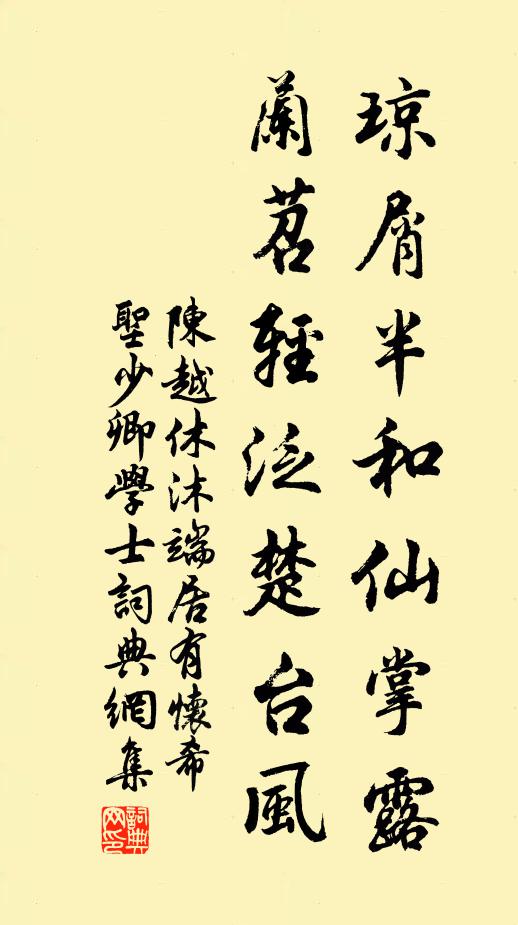 琼屑半和仙掌露
蘭苕輕泛楚台風
陳越休沐端居有懷希
聖少卿學士詞典網集
詞典
网印